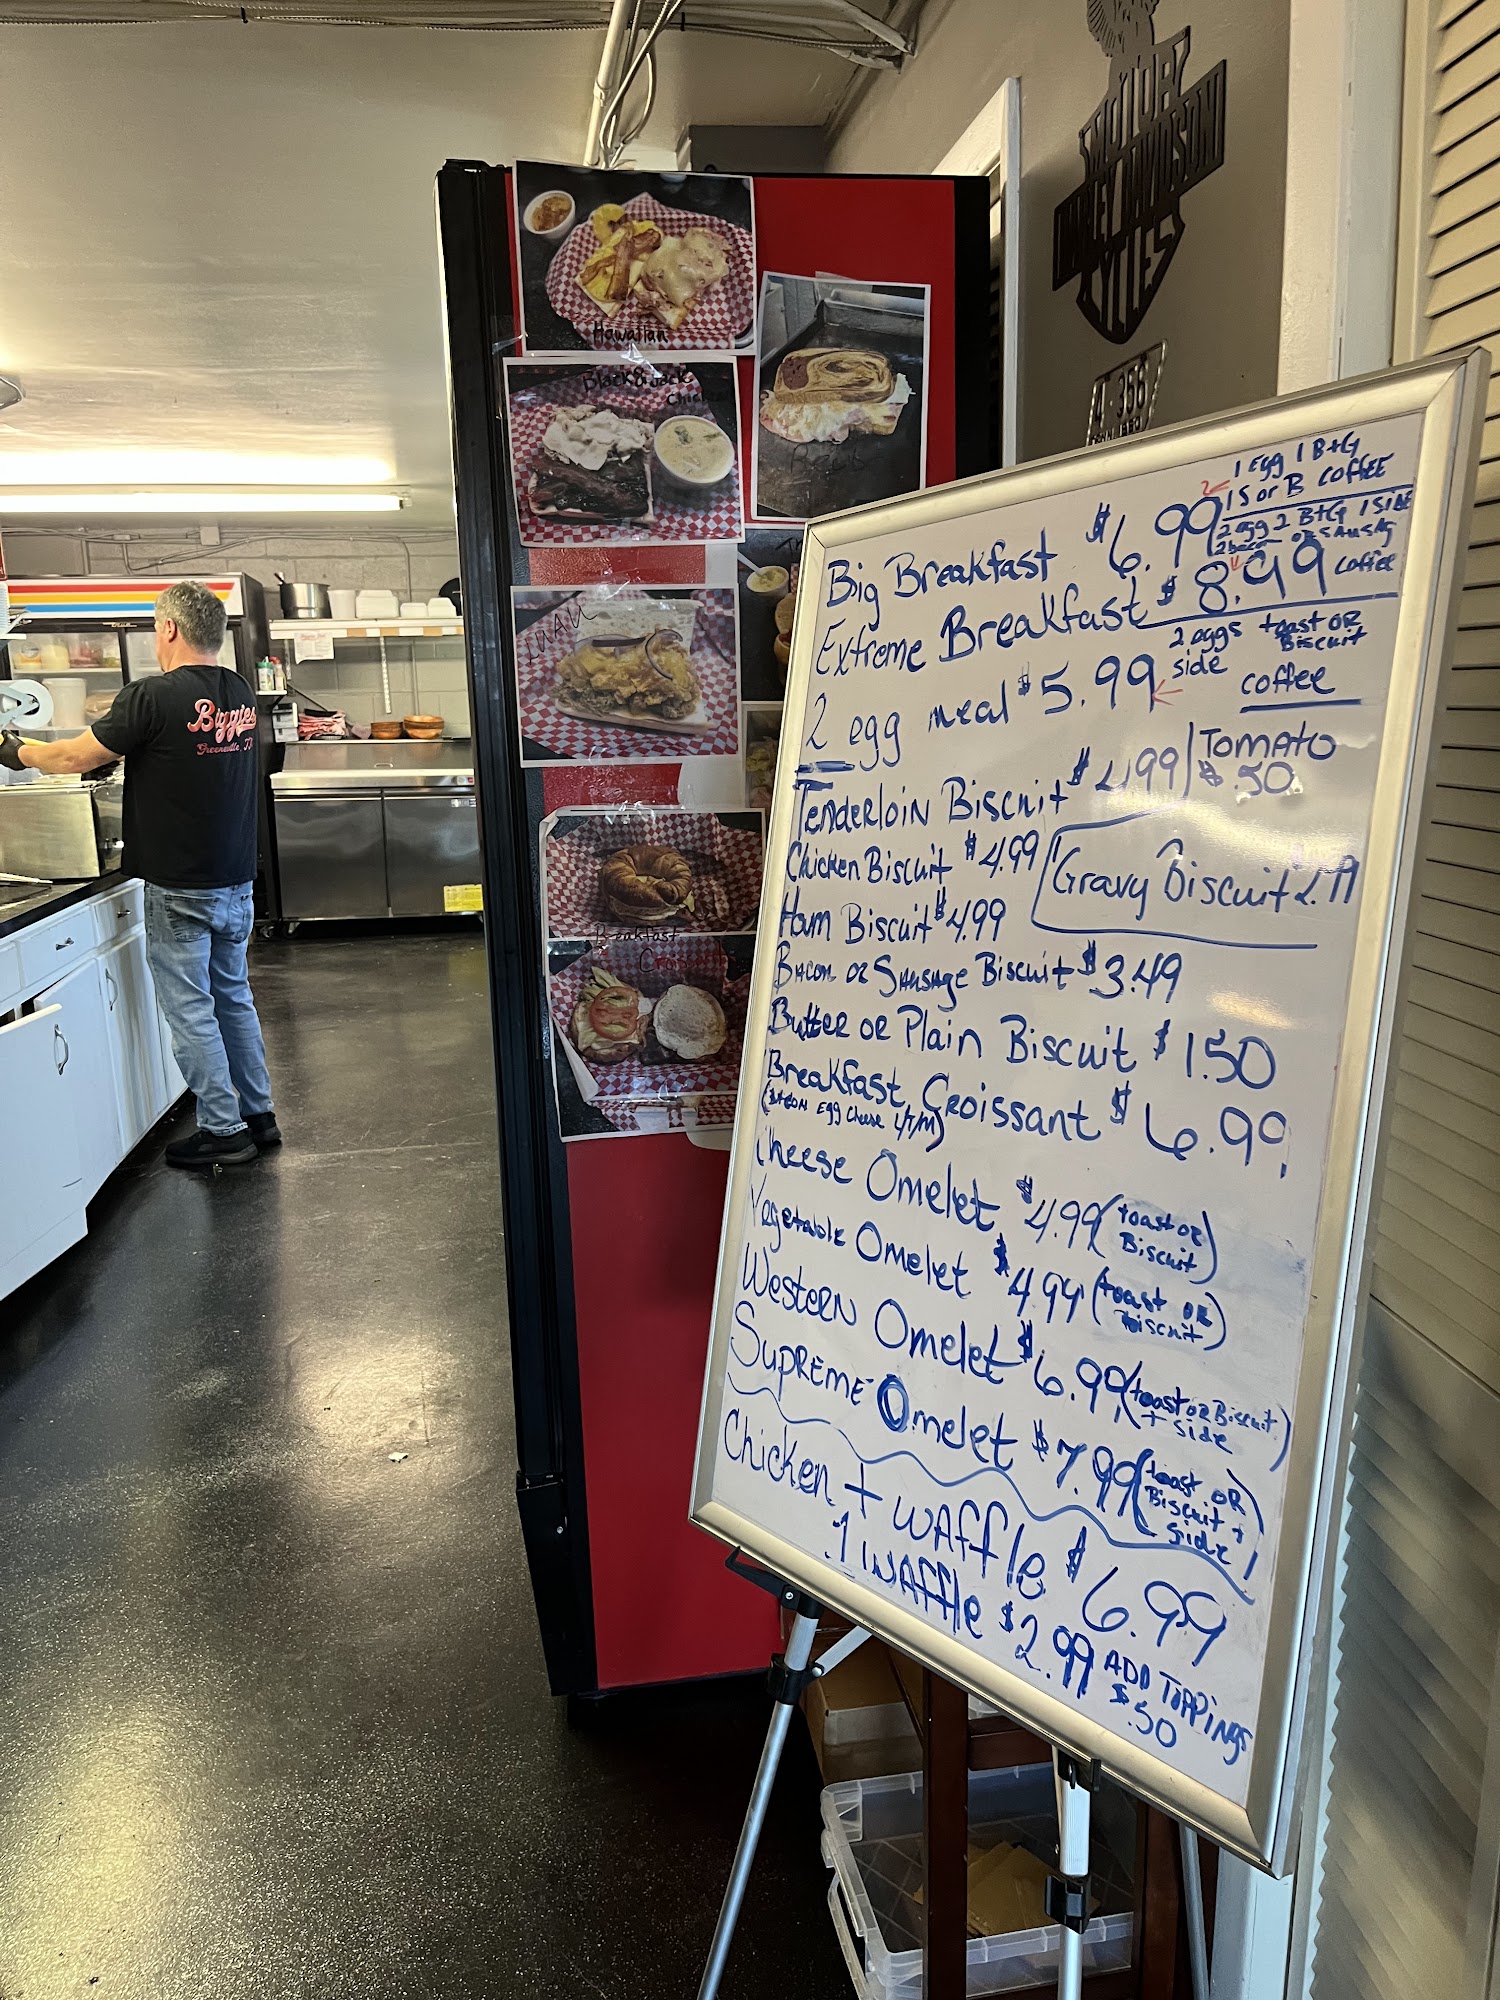 MOTOR
HARLEY-DAVIDSON
CYCLES
Hawaiian
Black & Jack
Breakfast
Croissant
Biggies
Greeneville, TN
1 Egg 1 B+G
1 S or B COFFEE
Big Breakfast $6.99
2 Egg 2 B+G 1 SIDE
2 bacon or SAUSAG
Extreme Breakfast $8.99 coffee
2 eggs toast OR Biscuit
side
coffee
2 egg meal $5.99
Tenderloin Biscuit $4.99 / TOMATO
$.50
Chicken Biscuit $4.99
Gravy Biscuit 2.99
Ham Biscuit $4.99
BACON or SAUSAGE Biscuit $3.49
Butter or Plain Biscuit $1.50
Breakfast Croissant $6.99
(BACON Egg Cheese L/T/M)
Cheese Omelet $4.99 (toast or
Biscuit)
Vegetable Omelet $4.99 (toast or
Biscuit)
Western Omelet $6.99 (toast or Biscuit
+ side)
Supreme Omelet $7.99 (toast or
Biscuit +
side)
Chicken + waffle $6.99
1 WAffle $2.99 ADD TOPPiNgs
$.50